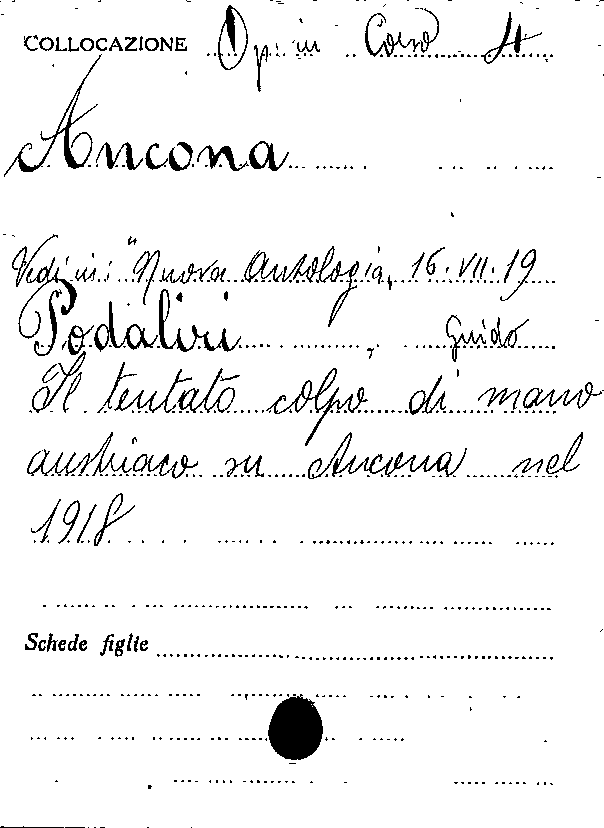 COLLOCAZIONE Op. in Corso 4
Ancona
Vedi in: "Nuova Antologia, 16.VII.19
Podaliri, Guido
Il tentato colpo di mano
austriaco su Ancona nel
1918
Schede figlie